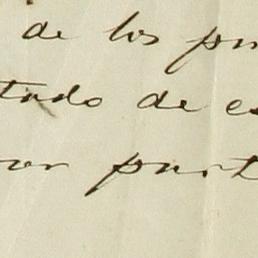 de los pu
tado de es
por part